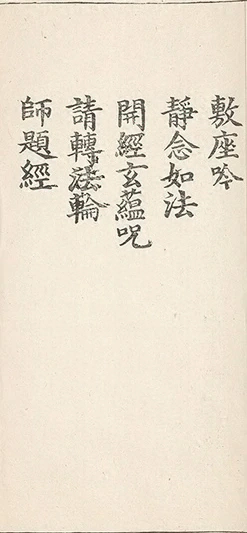 敷座吟
靜念如法
開經玄蘊呪
請轉法輪
師題經